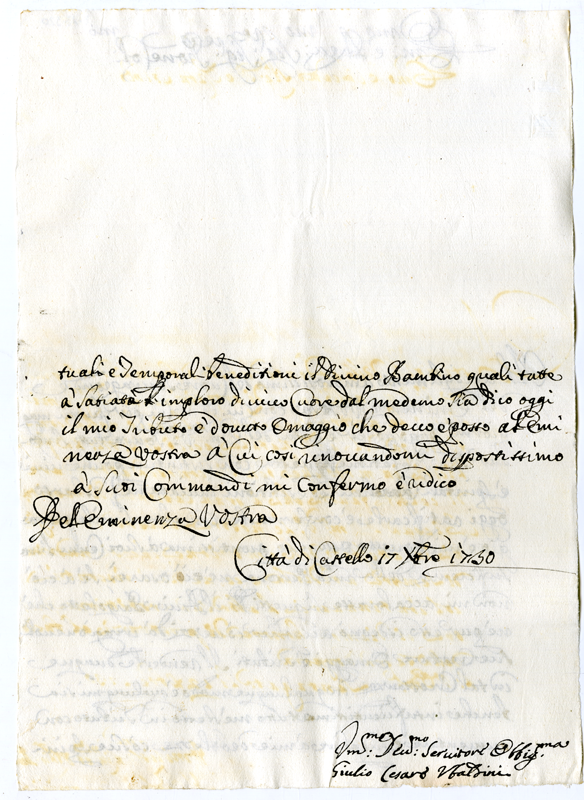 tuali e Temporali Benedizioni il Divino Bambino quali tutte
à Sua imploro di vivo Cuore dal medemo sia dico oggi
il mio Tributo e dovuto Omaggio che devo e posso all'Emi
nenza Vostra à Cui così rinovandomi dispostissimo
à Suoi Commandi mi Confermo è redico
Dell'Eminenza Vostra
Città di Castello 17 Xbre 1730
Um:mo Dev:mo Servitore Obblig:mo
Giulio Cesare Ubaldini